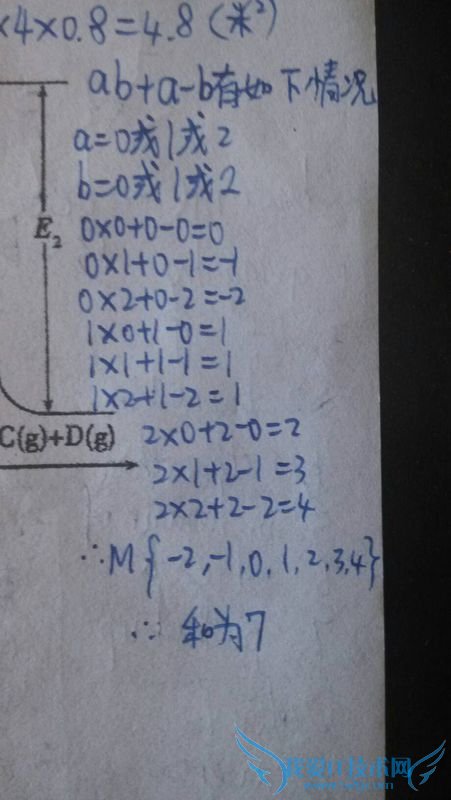 ×4×0.8=4.8(米²)
ab+a-b有如下情况
a=0或1或2
b=0或1或2
E₂
0×0+0-0=0
0×1+0-1=-1
0×2+0-2=-2
1×0+1-0=1
1×1+1-1=1
1×2+1-2=1
C(g)+D(g)
2×0+2-0=2
2×1+2-1=3
2×2+2-2=4
∴M{-2,-1,0,1,2,3,4}
∴ 和为7